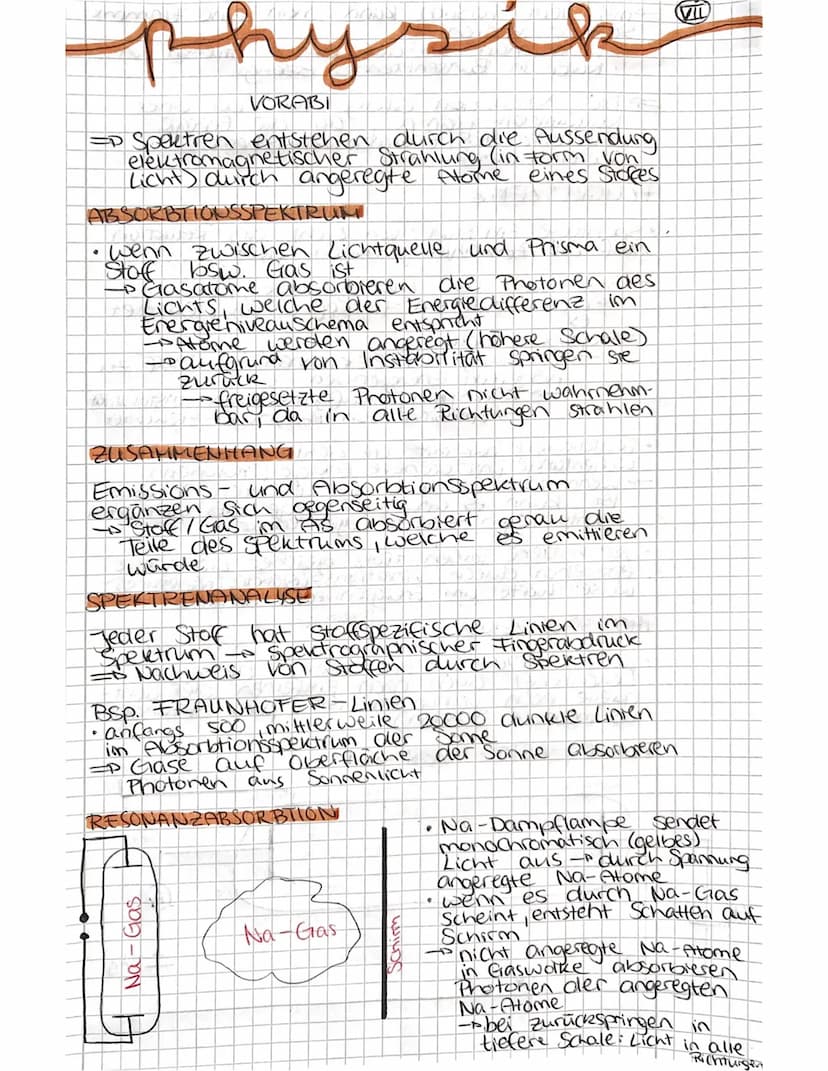 physik
VII
VORABI
⇒ Spektren entstehen durch die Aussendung
elektromagnetischer Strahlung (in Form von
Licht) durch angeregte Atome eines Stoffes
ABSORBTIONSSPEKTRUM
• wenn zwischen Lichtquelle und Prisma ein
Stoff bsw. Gas ist
→ Gasatome absorbieren die Photonen des
Lichts, welche der Energiedifferenz im
Energieniveauschema entspricht
→ Atome werden angeregt (höhere Schale)
→ aufgrund von Instabilität springen sie
zurück
→ freigesetzte Photonen nicht wahrnehm-
bar, da in alle Richtungen strahlen
ZUSAMMENHANG
Emissions- und Absorbtionsspektrum
ergänzen sich gegenseitig
→ Stoff/Gas im AS absorbiert genau die
Teile des Spektrums, welche es emittieren
würde
SPEKTRENANALYSE
Jeder Stoff hat stoffspezifische Linien im
Spektrum → Spektrographischer Fingerabdruck
⇒ Nachweis von Stoffen durch Spektren
Bsp. FRAUNHOFER-Linien
• anfangs 500, mittlerweile 20000 dunkle Linien
im Absorbtionsspektrum der Sonne
⇒ Gase auf Oberfläche der Sonne absorbieren
Photonen aus Sonnenlicht
RESONANZABSORBTION
Na-Gas
Na-Gas
Schirm
• Na-Dampflampe sendet
monochromatisch (gelbes)
Licht aus → durch Spannung
angeregte Na-Atome
• wenn es durch Na-Gas
scheint, entsteht Schatten auf
Schirm
→ nicht angeregte Na-Atome
in Gaswolke absorbieren
Photonen der angeregten
Na-Atome
→ bei zurückspringen in
tiefere Schale: Licht in alle
Richtungen